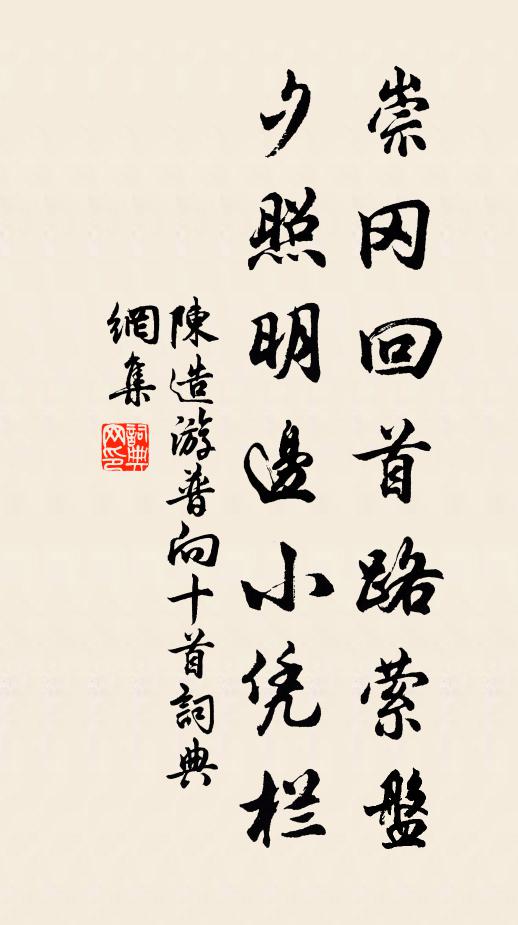 崇冈回首路萦盤
夕照明邊小凭栏
陳造游普向十首詞典
網集
詞典
网印